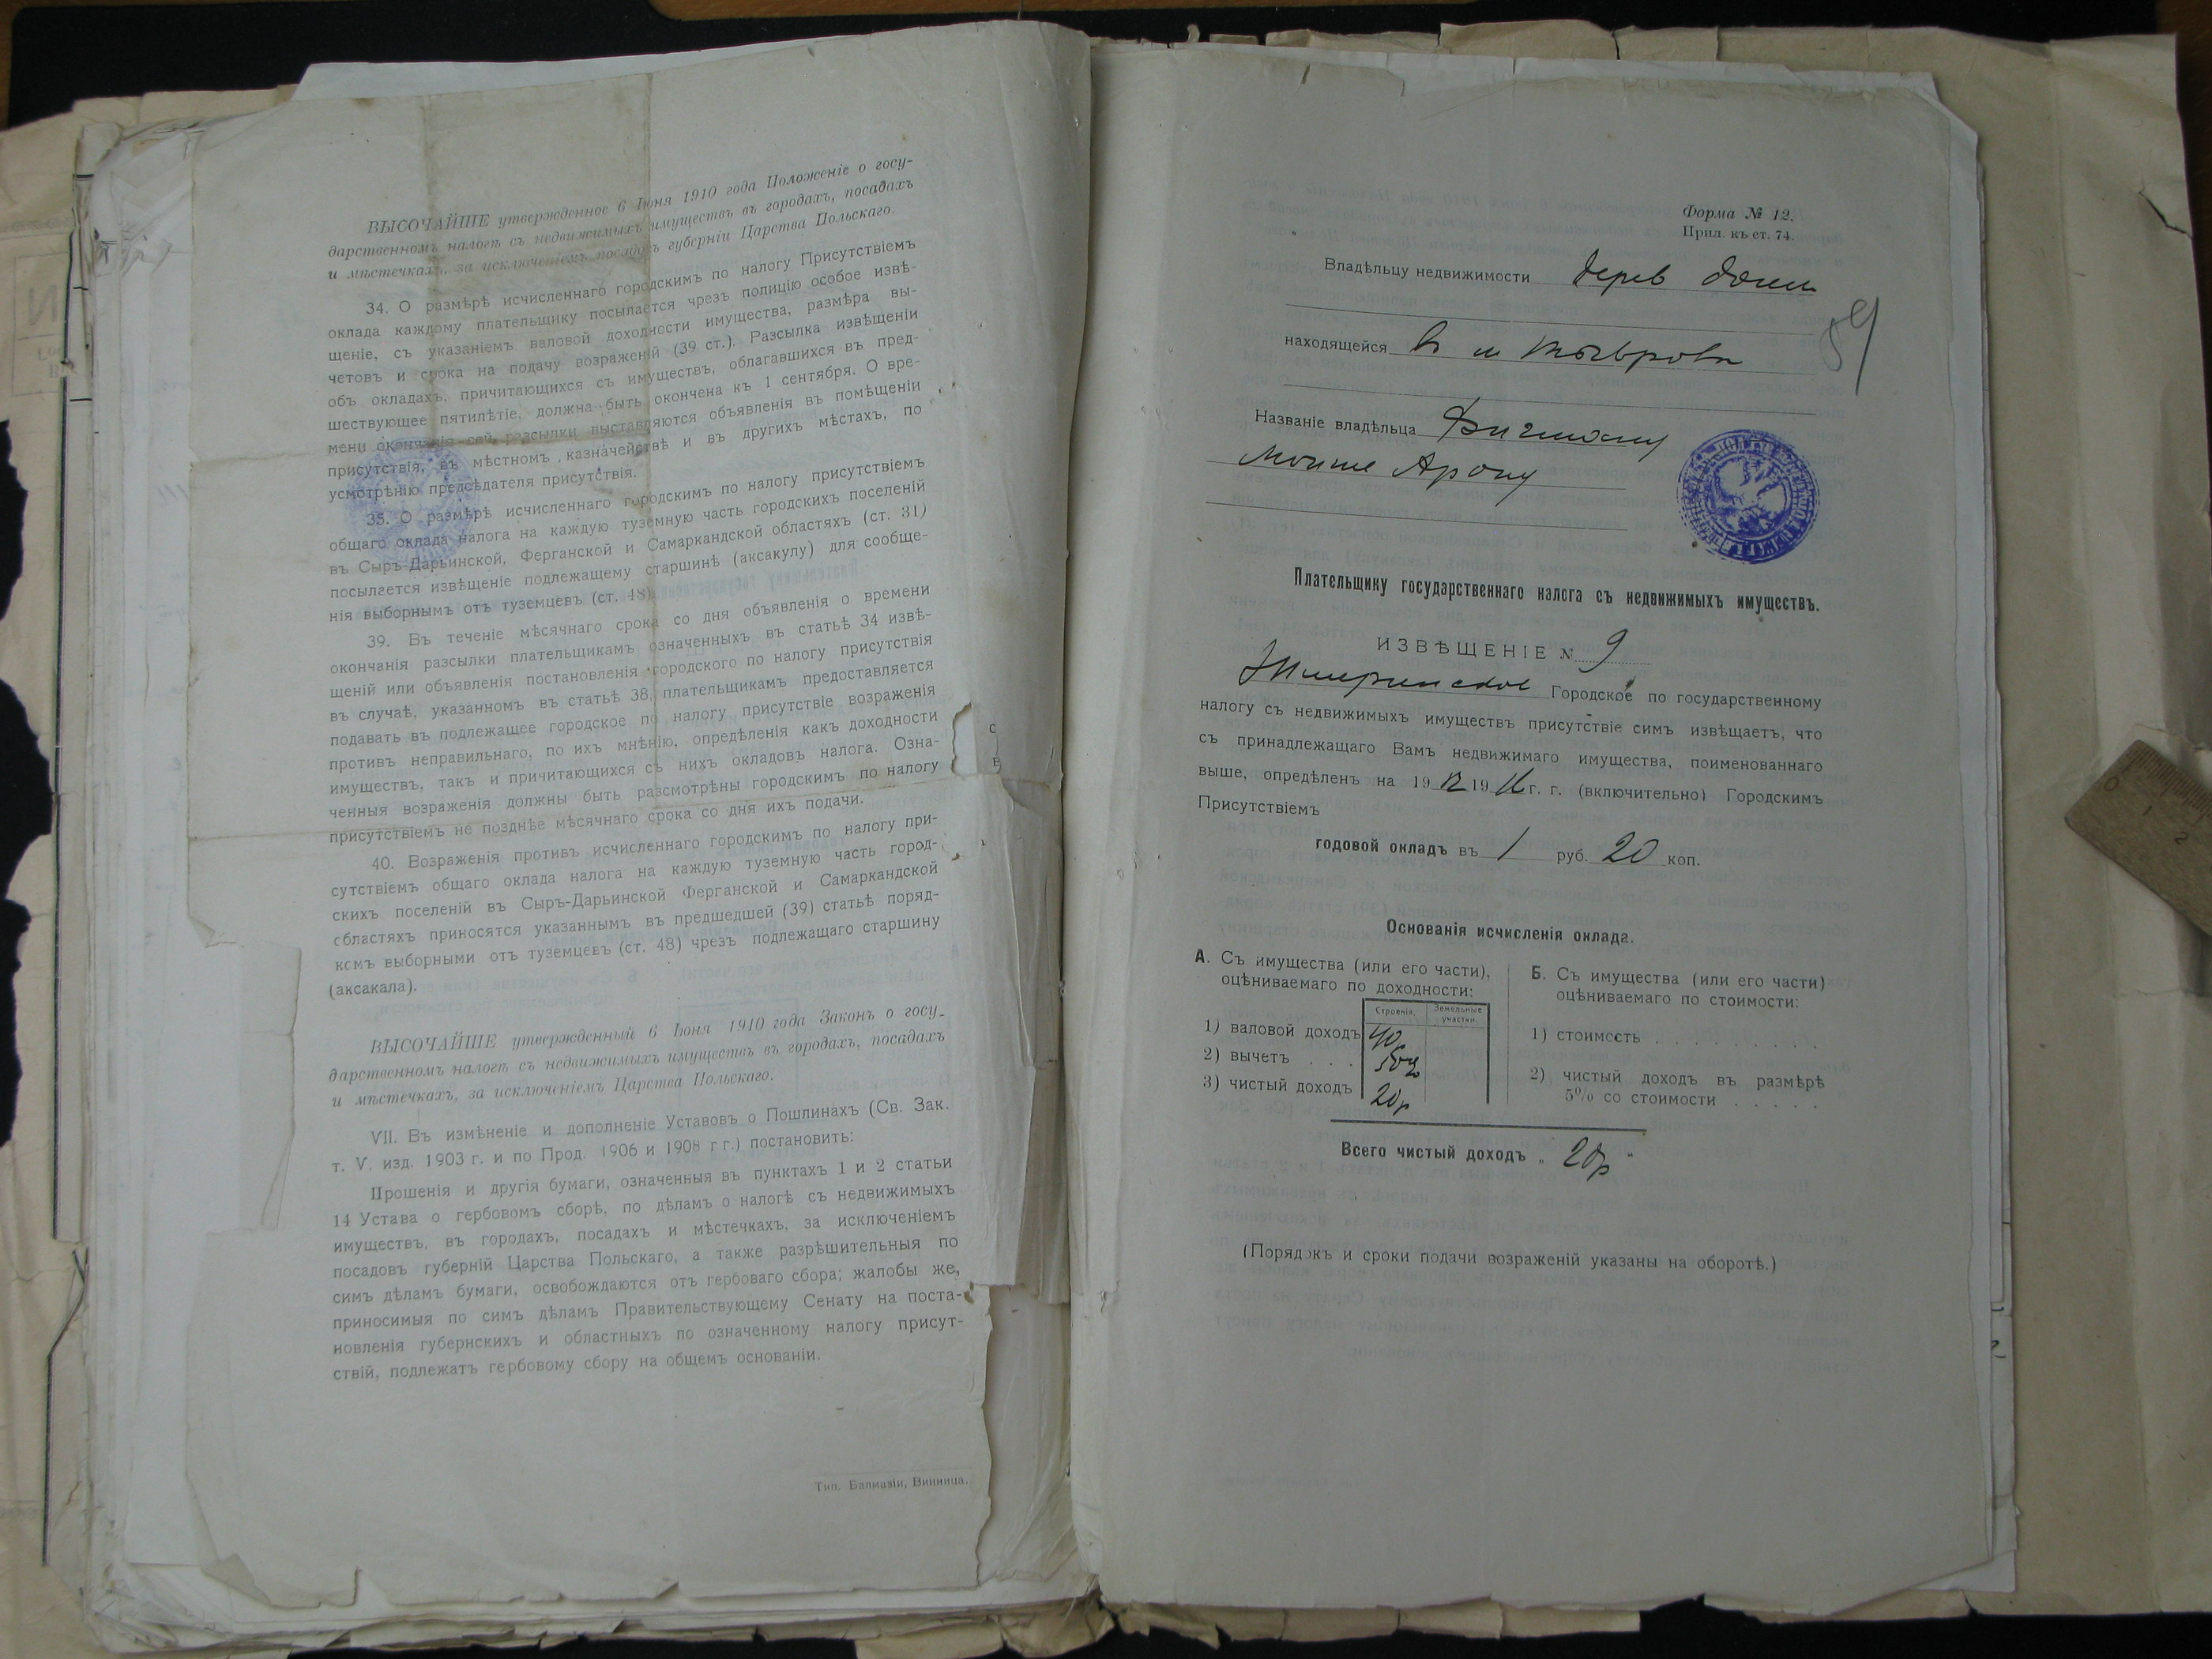 ВЫСОЧАЙШЕ утвержденное 6 Іюня 1910 года Положеніе о госу-
дарственномъ налогѣ съ недвижимыхъ имуществъ въ городахъ, посадахъ
и мѣстечкахъ, за исключеніемъ посадовъ губерніи Царства Польскаго.
34. О размѣрѣ исчисленнаго городскимъ по налогу Присутствіемъ
оклада каждому плательщику посылается чрезъ полицію особое извѣ-
щеніе, съ указаніемъ валовой доходности имущества, размѣра вы-
четовъ и срока на подачу возраженій (39 ст.). Разсылка извѣщеніи
объ окладахъ, причитающихся съ имуществъ, облагавшихся въ пред-
шествующее пятилѣтіе, должна быть окончена къ 1 сентября. О вре-
мени окончанія сей разсылки выставляются объявленія въ помѣщеніи
присутствія, въ мѣстномъ казначействѣ и въ другихъ мѣстахъ, по
усмотрѣнію предсѣдателя присутствія.
35. О размѣрѣ исчисленнаго городскимъ по налогу присутствіемъ
общаго оклада налога на каждую туземную часть городскихъ поселеній
въ Сыръ-Дарьинской, Ферганской и Самаркандской областяхъ (ст. 31)
посылается извѣщеніе подлежащему старшинѣ (аксакулу) для сообще-
нія выборнымъ отъ туземцевъ (ст. 48).
39. Въ теченіе мѣсячнаго срока со дня объявленія о времени
окончанія разсылки плательщикамъ означенныхъ въ статьѣ 34 извѣ-
щеній или объявленія постановленія городского по налогу присутствія
въ случаѣ, указанномъ въ статьѣ 38, плательщикамъ предоставляется
подавать въ подлежащее городское по налогу присутствіе возраженія
противъ неправильнаго, по ихъ мнѣнію, опредѣленія какъ доходности
имуществъ, такъ и причитающихся съ нихъ окладовъ налога. Озна-
ченныя возраженія должны быть разсмотрѣны городскимъ по налогу
присутствіемъ не позднѣе мѣсячнаго срока со дня ихъ подачи.
40. Возраженія противъ исчисленнаго городскимъ по налогу при-
сутствіемъ общаго оклада налога на каждую туземную часть город-
скихъ поселеній въ Сыръ-Дарьинской Ферганской и Самаркандской
областяхъ приносятся указаннымъ въ предшедшей (39) статьѣ поряд-
комъ выборными отъ туземцевъ (ст. 48) чрезъ подлежащаго старшину
(аксакала).
ВЫСОЧАЙШЕ утвержденный 6 Іюня 1910 года Законъ о госу-
дарственномъ налогѣ съ недвижимыхъ имуществъ въ городахъ, посадахъ
и мѣстечкахъ, за исключеніемъ Царства Польскаго.
VII. Въ измѣненіе и дополненіе Уставовъ о Пошлинахъ (Св. Зак.
т. V. изд. 1903 г. и по Прод. 1906 и 1908 г г.) постановить:
Прошенія и другія бумаги, означенныя въ пунктахъ 1 и 2 статьи
14 Устава о гербовомъ сборѣ, по дѣламъ о налогѣ съ недвижимыхъ
имуществъ, въ городахъ, посадахъ и мѣстечкахъ, за исключеніемъ
посадовъ губерній Царства Польскаго, а также разрѣшительныя по
симъ дѣламъ бумаги, освобождаются отъ гербоваго сбора; жалобы же,
приносимыя по симъ дѣламъ Правительствующему Сенату на поста-
новленія губернскихъ и областныхъ по означенному налогу присут-
ствій, подлежатъ гербовому сбору на общемъ основаніи.
Тип. Балмазіи, Винница.
Форма № 12.
Прил. къ ст. 74.
Владѣльцу недвижимости дерев доми
находящейся въ м Тыврово
Названіе владѣльца Фигману
Моише Арону
Плательщику государственнаго налога съ недвижимыхъ имуществъ.
ИЗВѢЩЕНІЕ № 9
Жмеринское Городское по государственному
налогу съ недвижимыхъ имуществъ присутствіе симъ извѣщаетъ, что
съ принадлежащаго Вамъ недвижимаго имущества, поименованнаго
выше, опредѣленъ на 1912 1916 г. г. (включительно) Городскимъ
Присутствіемъ
годовой окладъ въ 1 руб. 20 коп.
Основанія исчисленія оклада.
А. Съ имущества (или его части),
оцѣниваемаго по доходности:
Строенія. Земельные участки.
1) валовой доходъ 40
2) вычетъ . . . 50%
3) чистый доходъ 20р
Б. Съ имущества (или его части)
оцѣниваемаго по стоимости:
1) стоимость . . . . . . . . .
2) чистый доходъ въ размѣрѣ
5% со стоимости . . . . .
Всего чистый доходъ „ 20р "
(Порядокъ и сроки подачи возраженій указаны на оборотѣ.)